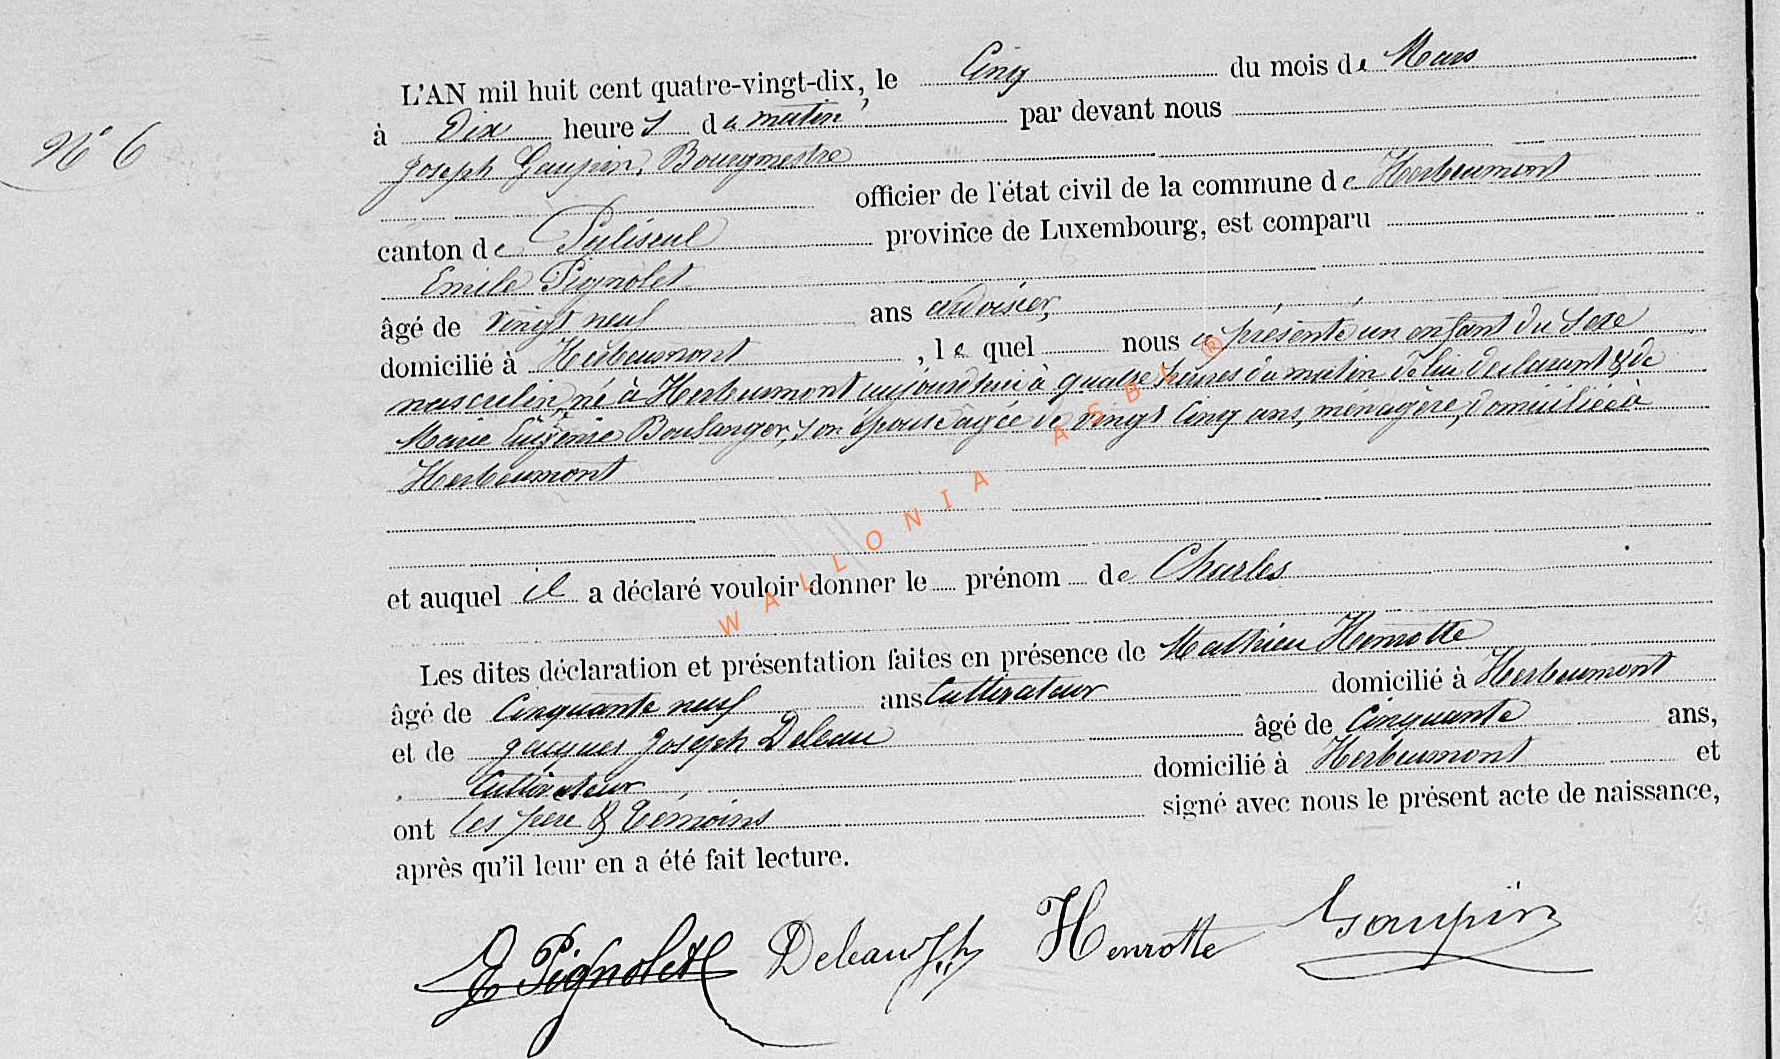 N° 6
L'AN mil huit cent quatre-vingt-dix, le Cinq du mois de Mars
à Dix heures du matin, par devant nous
Joseph Gaupin, Bourgmestre
officier de l'état civil de la commune de Herbeumont
canton de Paliseul province de Luxembourg, est comparu
Emile Pignolet
âgé de vingt neuf ans ardoisier,
domicilié à Herbeumont, lequel nous a présenté un enfant du sexe
masculin, né à Herbeumont aujourd'hui à quatre heures du matin de lui déclarant & de
Marie Eugénie Boulanger, son épouse âgée de vingt cinq ans, ménagère, domiciliée à
Herbeumont
et auquel il a déclaré vouloir donner le prénom de Charles
Les dites déclaration et présentation faites en présence de Mathieu Henrotte
âgé de Cinquante neuf ans Cultivateur domicilié à Herbeumont
et de Jacques Joseph Deleau âgé de Cinquante ans,
Cultivateur, domicilié à Herbeumont et
ont les père & témoins signé avec nous le présent acte de naissance,
après qu'il leur en a été fait lecture.
E Pignolet Deleau JJh Henrotte Gaupin
WALLONIA ASBL ®